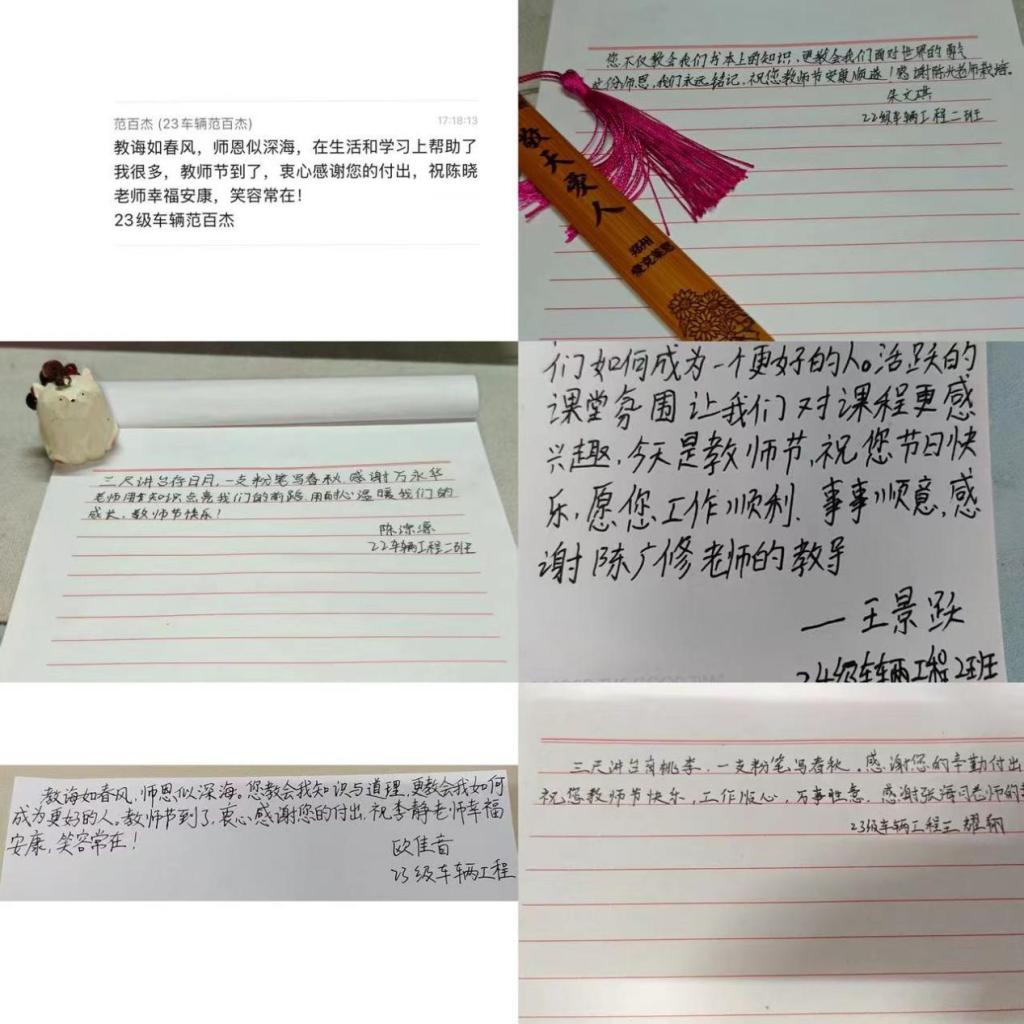 范百杰 (23车辆范百杰)
17:18:13
教诲如春风，师恩似深海，在生活和学习上帮助了
我很多，教师节到了，衷心感谢您的付出，祝陈晓
老师幸福安康，笑容常在！
23级车辆范百杰
您不仅教会我们书本上的知识，更教会我们面对世界的勇气
这份师恩，我们永远铭记，祝您教师节安康顺遂！感谢陈光老师教诲。
朱文琪
22级车辆工程二班
敬天爱人
郑州
三尺讲台存日月，一支粉笔写春秋，感谢万永华
老师用知识点亮我们的前路，用耐心温暖我们的
成长，教师节快乐！
陈源
22车辆工程二班
们如何成为一个更好的人。活跃的
课堂氛围让我们对课程更感
兴趣，今天是教师节，祝您节日快
乐，愿您工作顺利、事事顺意，感
谢陈广修老师的教导
—王景跃
24级车辆工程2班
教诲如春风，师恩似深海。您教会我知识与道理，更教会我如何
成为更好的人。教师节到了，衷心感谢您的付出，祝李静老师幸福
安康，笑容常在！
欧佳音
23级车辆工程
三尺讲台育桃李，一支粉笔写春秋。感谢您的辛勤付出
祝您教师节快乐，工作顺心，万事胜意，感谢张海习老师的
23级车辆工程王耀翔